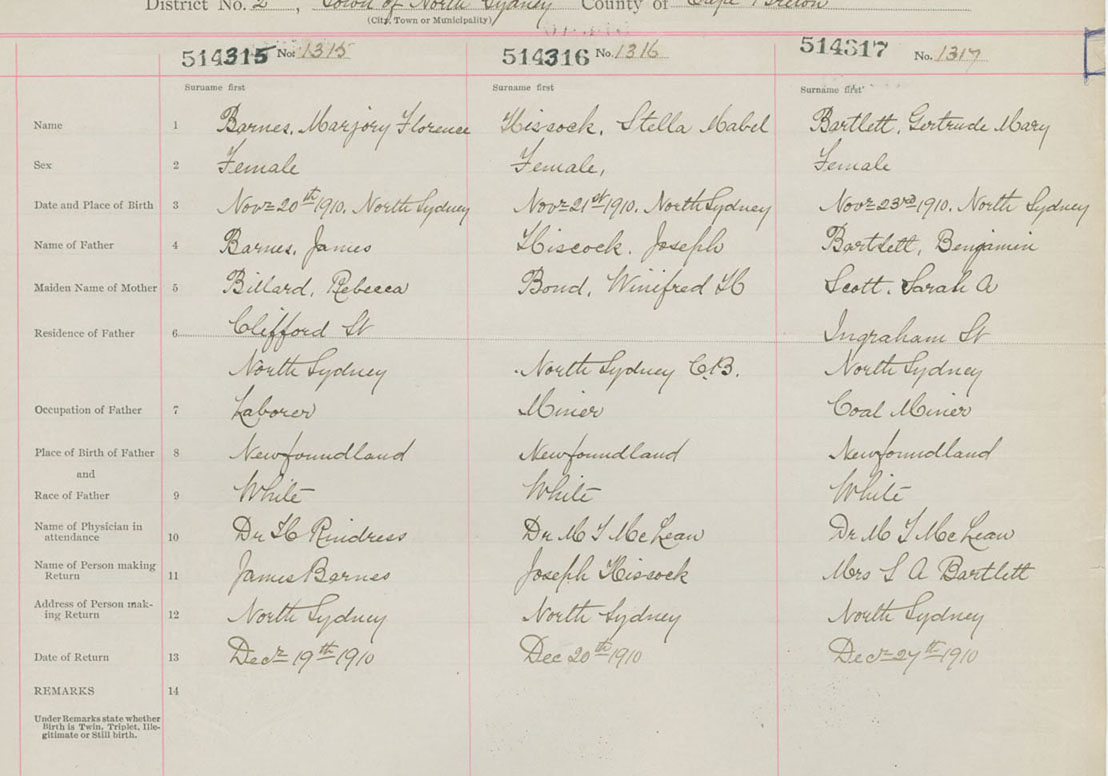 District No. 2, Town of North Sydney County of Cape Breton
(City, Town or Municipality)
514315 No. 1315 514316 No. 1316 514317 No. 1317
Surname first Surname first Surname first
Name 1 Barnes, Marjory Florence Hiscock, Stella Mabel Bartlett, Gertrude Mary
Sex 2 Female Female, Female
Date and Place of Birth 3 Novr 20th 1910. North Sydney Novr 21st 1910. North Sydney Novr 23rd 1910. North Sydney
Name of Father 4 Barnes, James Hiscock. Joseph Bartlett, Benjamin
Maiden Name of Mother 5 Billard, Rebecca Bond, Winifred H Scott. Sarah A
Residence of Father 6 Clifford St Ingraham St
North Sydney North Sydney C.B. North Sydney
Occupation of Father 7 Laborer Miner Coal Miner
Place of Birth of Father 8 Newfoundland Newfoundland Newfoundland
and
Race of Father 9 White White White
Name of Physician in
attendance 10 Dr H Rindress Dr M T McLean Dr M T McLean
Name of Person making
Return 11 James Barnes Joseph Hiscock Mrs S A Bartlett
Address of Person mak-
ing Return 12 North Sydney North Sydney North Sydney
Date of Return 13 Decr 19th 1910 Dec 20th 1910 Decr 27th 1910
REMARKS 14
Under Remarks state whether
Birth is Twin, Triplet, Ille-
gitimate or Still birth.